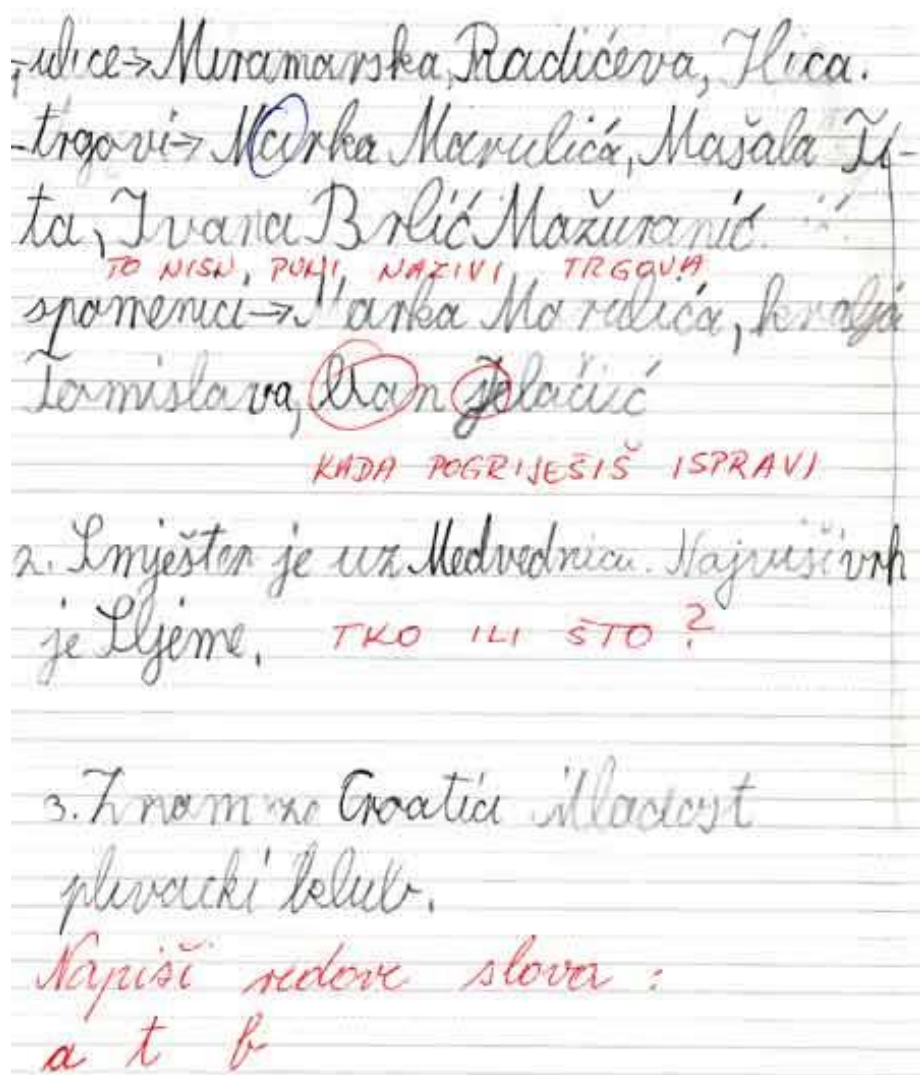 -ulice→Miramarska, Radićeva, Ilica.
-trgovi→Marka Marulića, Mašala Ti-
ta, Ivana Brlić Mažuranić.
TO NISU PUNI NAZIVI TRGOVA
spomenici→Marka Marulića, kralja
Tomislava, ban Jelačić
KADA POGRIJEŠIŠ ISPRAVI
2. Smješten je uz Medvednicu. Najviši vrh
je Sljeme.
TKO ILI ŠTO?
3. Znam za Croatia Mladost
plivački klub.
Napiši redove slova:
a t b